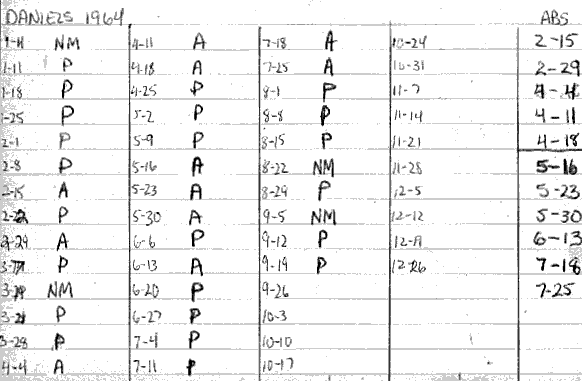 DANIELS 1964 ABS
NM 4-11 A 7-18 A 10-24 2-15
1-11 P 4-18 A 7-25 A 10-31 2-29
1-18 P 4-25 P 8-1 P 11-7 4-4
1-25 P 5-2 P 8-8 P 11-14 4-11
2-1 P 5-9 P 8-15 P 11-21 4-18
2-8 P 5-16 A 8-22 NM 11-28 5-16
2-15 A 5-23 A 8-29 P 12-5 5-23
2-22 P 5-30 A 9-5 NM 12-12 5-30
2-29 A 6-6 P 9-12 P 12-19 6-13
P 6-13 A 9-19 P 12-26 7-18
NM 6-20 P 9-26 7-25
P 6-27 P 10-3
3-28 P 7-4 P 10-10
4-4 A 7-11 P 10-17